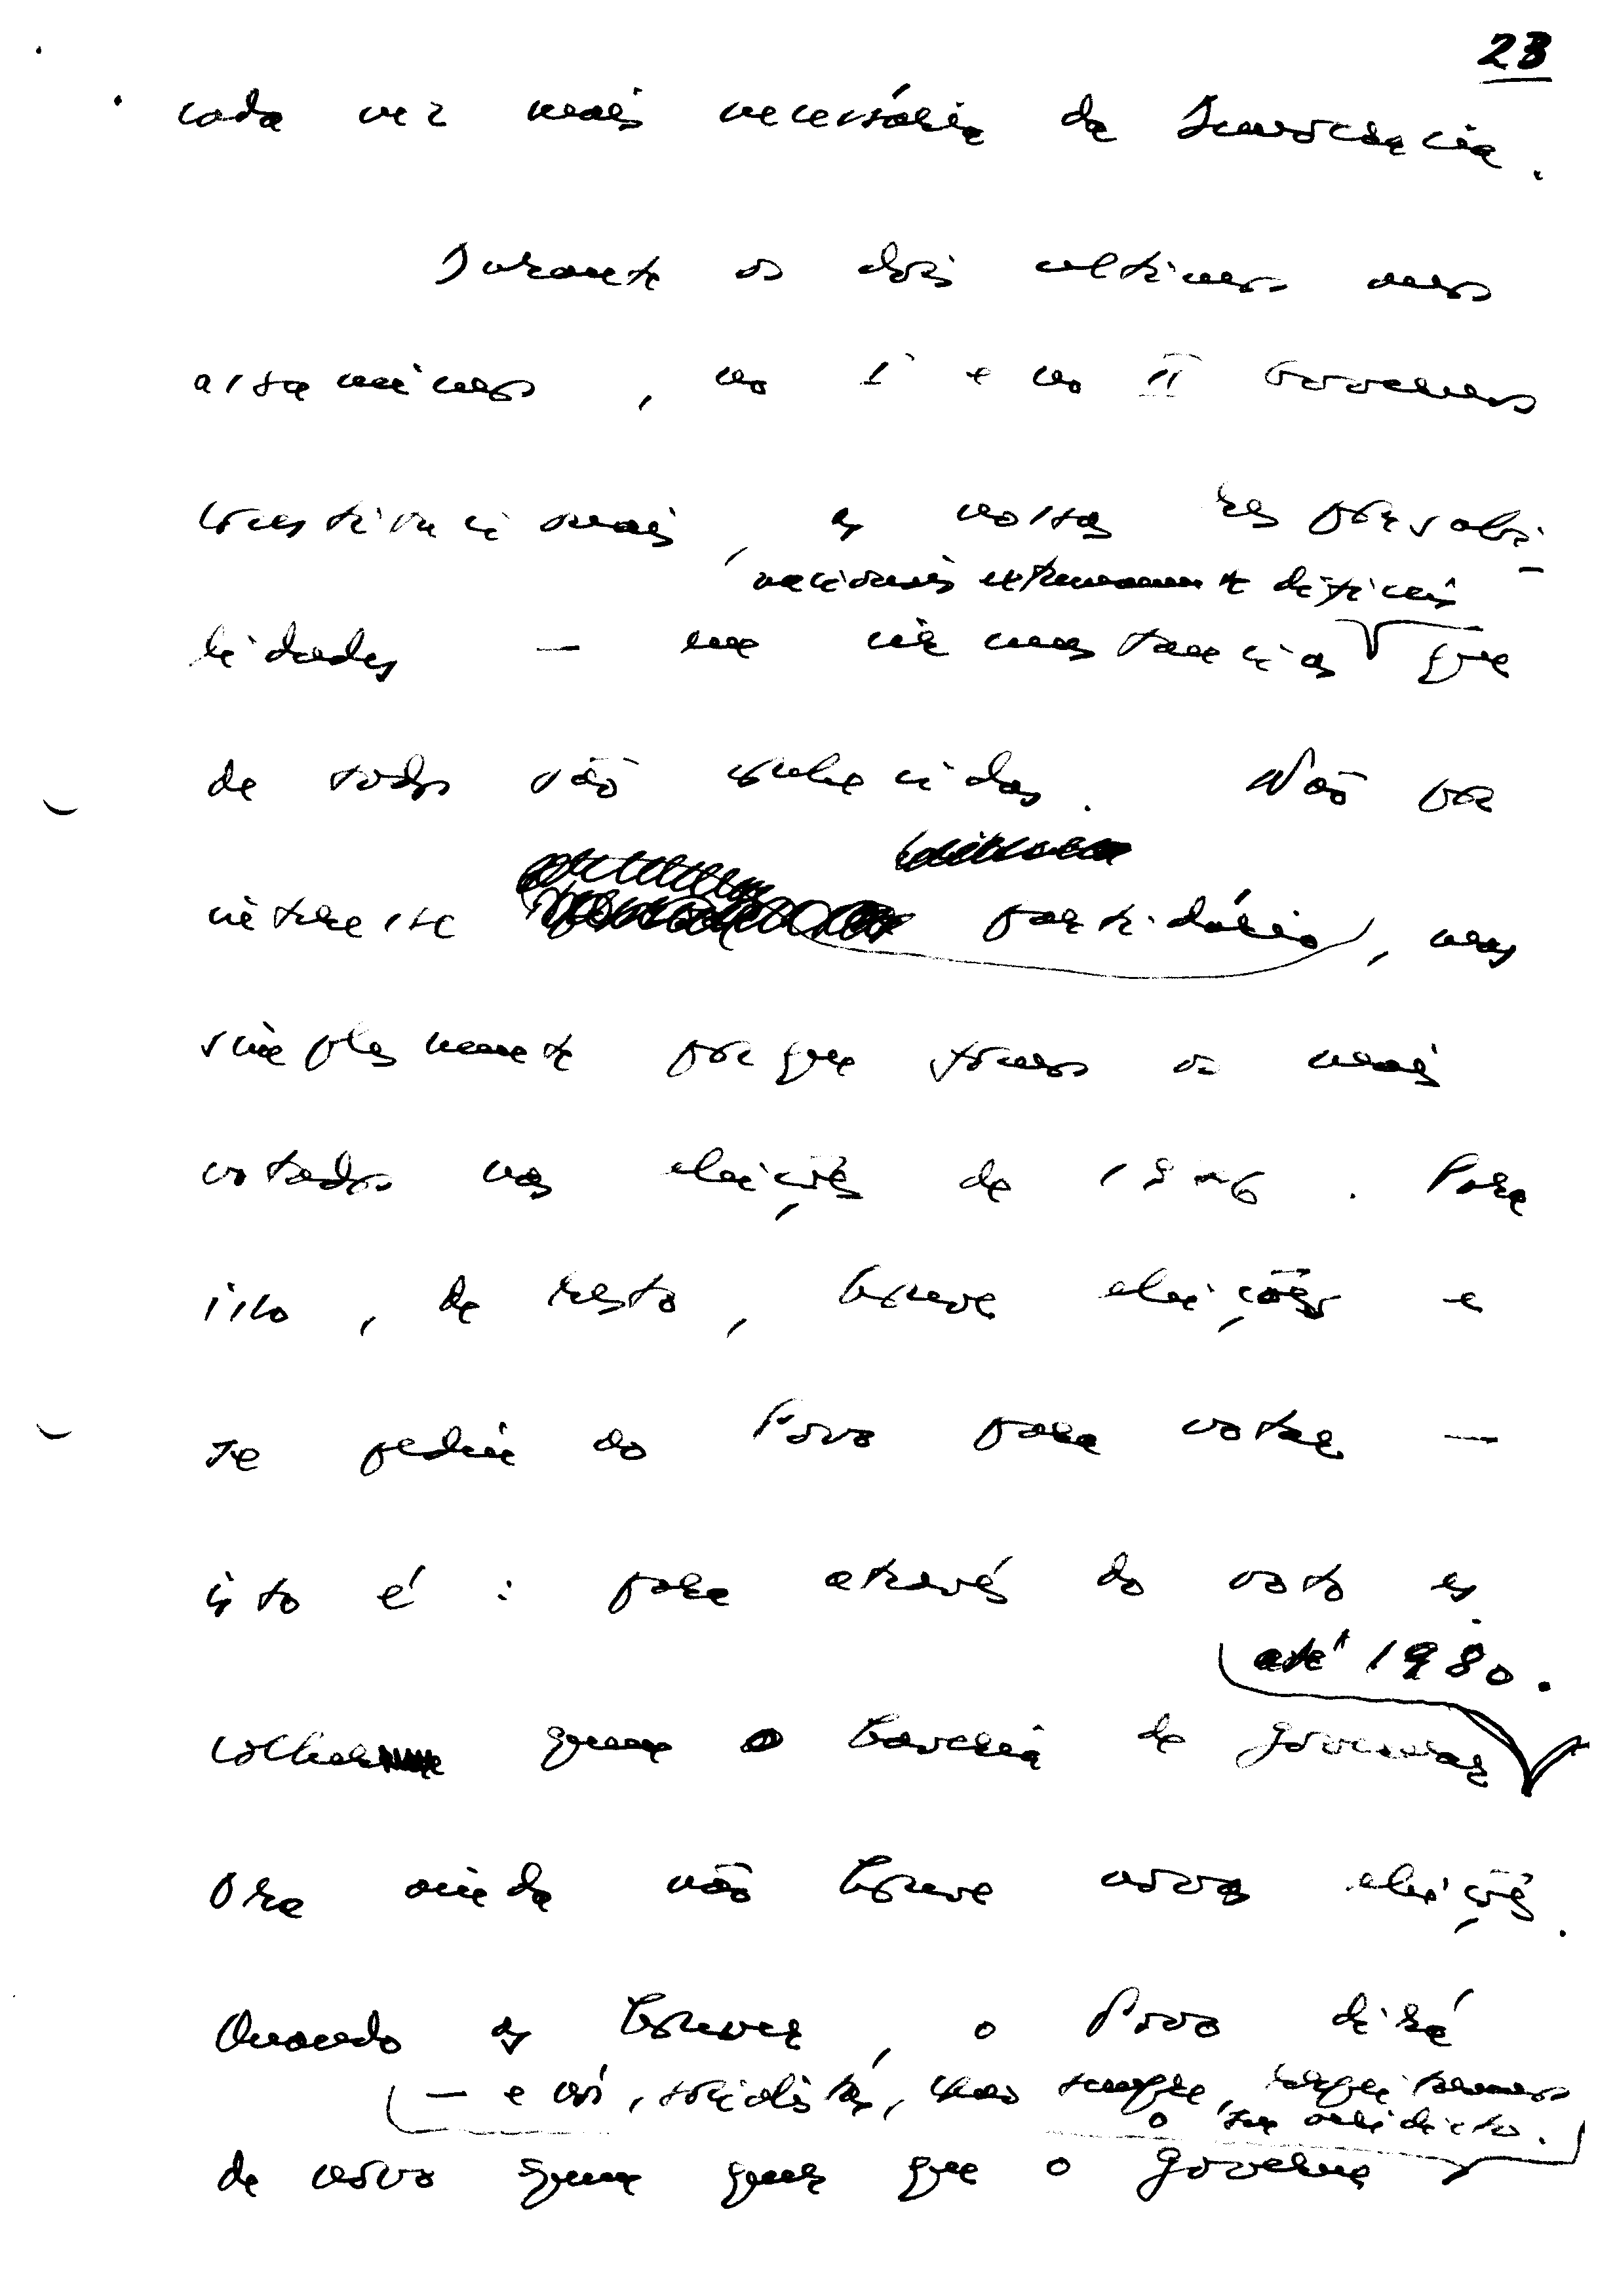 23
cada vez mais necessária da Democracia.
Durante os dois ultimos anos
assumimos, no I e no II Governos
Constitucionais, as nossas responsabi-
nacionais extremamente dificeis
lidades — em circunstancias que
de todos são conhecidas. Não por
interesse partidário, mas
simplesmente porque fomos os mais
votados nas eleições de 1976. Para
isso, de resto, houve eleições e
se pediu ao Povo para votar —
isto é: para através do voto es
até 1980.
colher quem haveria de governar
Ora ainda não houve novas eleições.
Quando as houver, o Povo dirá
— e nós, socialistas, como sempre, respeitaremos
o seu veridicto.
de novo quem quer que o governe